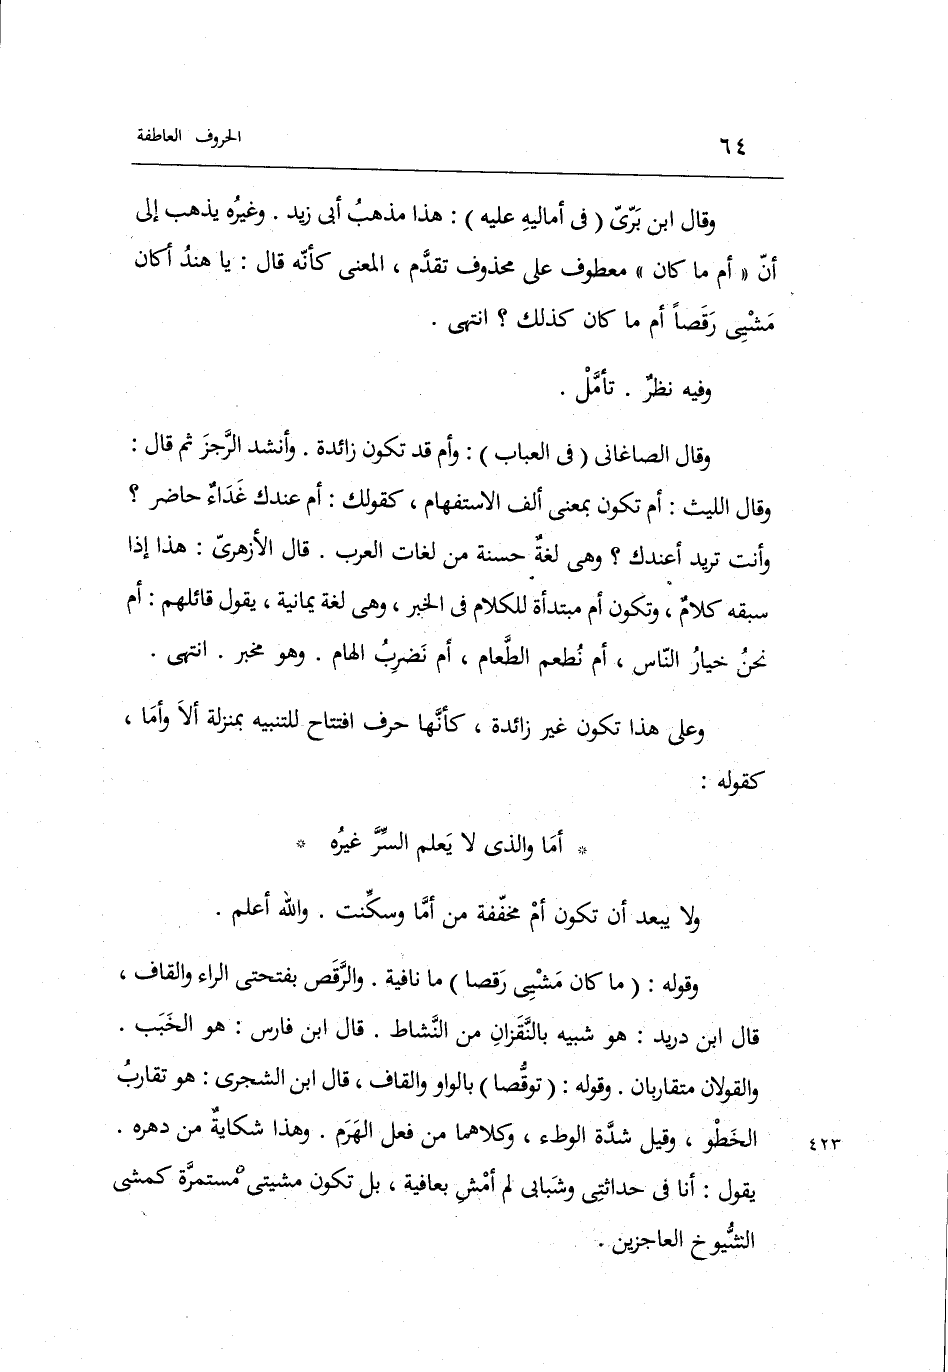 ٦٤
الحروف العاطفة
وقال ابن بَرّىّ ( فى أماليهِ عليه ) : هذا مذهبُ أبى زيد . وغيرُه يذهب إلى
أنّ « أم ما كان » معطوف على محذوف تقدَّم ، المعنى كأنّه قال : يا هندُ أكان
مَشْيِى رَقَصاً أم ما كان كذلك ؟ انتهى .
وفيه نظرٌ . تأمَّلْ .
وقال الصاغانى ( فى العباب ) : وأم قد تكون زائدة . وأنشد الرَّجزَ ثم قال :
وقال الليث : أم تكون بمعنى ألف الاستفهام ، كقولك : أم عندك غَدَاءٌ حاضر ؟
وأنت تريد أعندك ؟ وهى لغةٌ حسنة من لغات العرب . قال الأزهرىّ : هذا إذا
سبقه كلامٌ ، وتكون أم مبتدأة للكلام فى الخبر ، وهى لغة يمانية ، يقول قائلهم : أم
نحنُ خيارُ النّاس ، أم نُطعم الطَّعام ، أم نَضرِبُ الهام . وهو مخبر . انتهى .
وعلى هذا تكون غير زائدة ، كأنَّها حرف افتتاح للتنبيه بمنزلة ألاَ وأمَا ،
كقوله :
* أمَا والذى لا يَعلم السِّرَّ غيرُه *
ولا يبعد أن تكون أمْ مخفّفة من أمَّا وسكِّنت . والله أعلم .
وقوله : ( ما كان مَشْيِى رَقصا ) ما نافية . والرَّقَص بفتحتى الراء والقاف ،
قال ابن دريد : هو شبيه بالنَّقَزانِ من النَّشاط . قال ابن فارس : هو الخَبَب .
والقولان متقاربان . وقوله : ( توقُّصا ) بالواو والقاف ، قال ابن الشجرى : هو تقاربُ
الخَطْو ، وقيل شدَّة الوطء ، وكلاهما من فعل الهَرَم . وهذا شكايةٌ من دهره .
٤٢٣
يقول : أنا فى حداثتِى وشبابى لم أمْشِ بعافية ، بل تكون مشيتى مُستمرَّة كمشى
الشُّيوخ العاجزين .